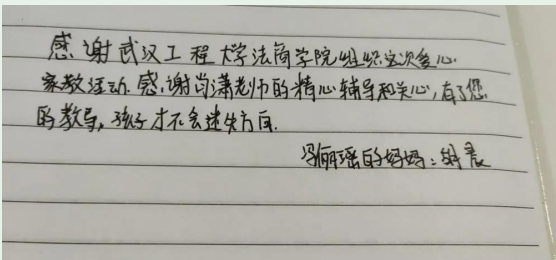 感谢武汉工程大学法商学院组织这次爱心
家教活动.感谢肖潇老师的精心辅导和关心,有了您
的教导,孩子才不会迷失方向.
冯俪瑶的妈妈:胡晨